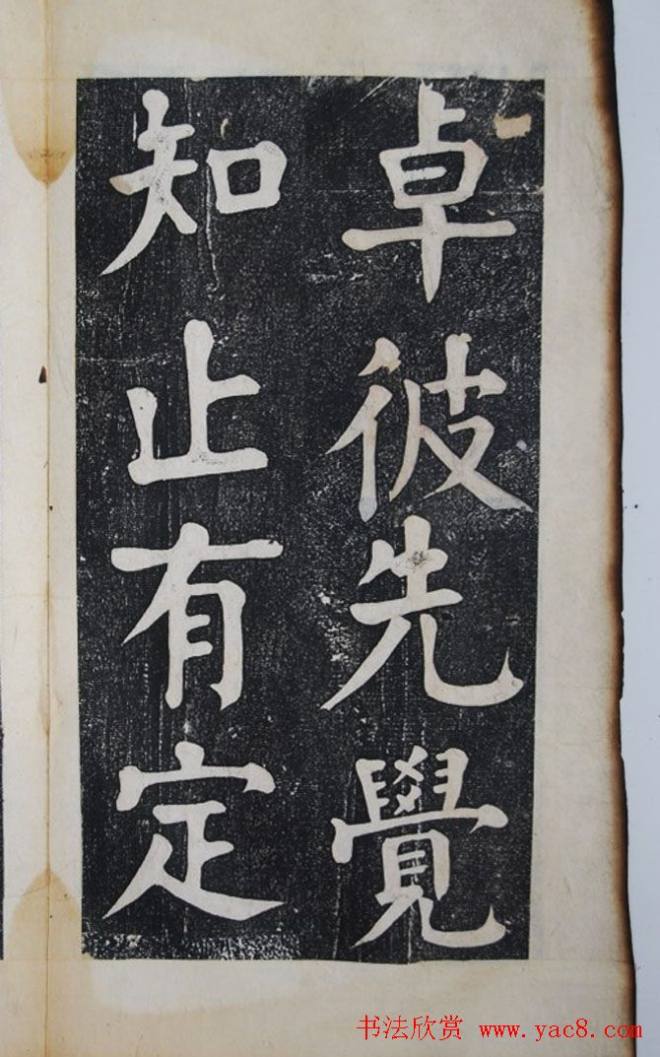 卓彼先覺
知止有定
书法欣赏 www.yac8.com